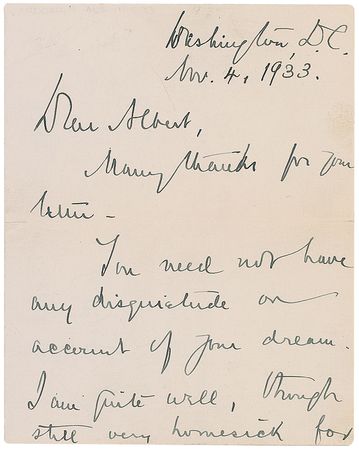 Washington, D.C.
Nov. 4, 1933.
Dear Albert,
Many thanks for your
letter –
You need not have
any disquietude on
account of your dream.
I am quite well, though
still very homesick for